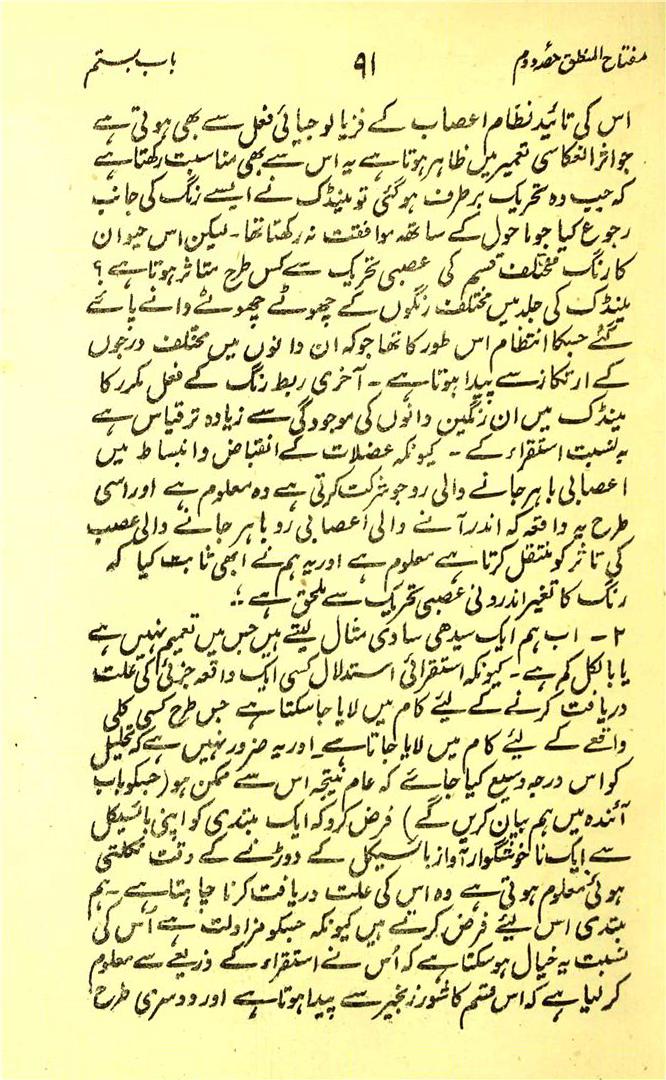 مفتاح المنطق حصہ دوم
۹۱
باب بستم
اس کی تائید نظام اعصاب کے فزیالوجیائی فعل سے بھی ہوتی ہے
جو اثر انعکاسی تعمیر میں ظاہر ہوتا ہے یہ اس سے بھی مناسبت رکھتا ہے
کہ جب وہ تحریک برطرف ہو گئی تو مینڈک نے ایسے رنگ کی جانب
رجوع کیا جو ماحول کے ساتھ موافقت نہ رکھتا تھا۔ لیکن اس حیوان
کا رنگ مختلف قسم کی عصبی تحریک سے کس طرح متاثر ہوتا ہے؟
مینڈک کی جلد میں مختلف رنگوں کے چھوٹے چھوٹے دانے پائے
گئے جبکا انتظام اس طور کا تھا جو کہ ان دانوں میں مختلف درجوں
کے ارتکاز سے پیدا ہوتا ہے۔ آخری ربط رنگ کے فعل مکرر کا
مینڈک میں ان رنگین دانوں کی موجودگی سے زیادہ تر قیاس ہے
بہ نسبت استقراء کے۔ کیونکہ عضلات کے انقباض و انبساط میں
اعصابی باہر جانے والی رو جو شرکت کرتی ہے وہ معلوم ہے اور اسی
طرح یہ واقعہ کہ اندر آنے والی اعصابی رو باہر جانے والی عصب
کی تاثر کو منتقل کرتا ہے معلوم ہے اور یہ ہم نے ابھی ثابت کیا کہ
رنگ کا تغیر اندرونی عصبی تحریک سے ملحق ہے ؛
۲۔ اب ہم ایک سیدھی سادی مثال لیتے ہیں جس میں تعمیم نہیں ہے
یا بالکل کم ہے۔ کیونکہ استقرائی استدلال کسی ایک واقعہ جزئی کی علت
دریافت کرنے کے لیئے کام میں لایا جا سکتا ہے جس طرح کسی کلی
واقعے کے لیئے کام میں لایا جاتا ہے۔ اور یہ ضرور نہیں ہے کہ تحلیل
کو اس درجہ وسیع کیا جائے کہ عام نتیجہ اس سے ممکن ہو (جبکو باب
آئندہ میں ہم بیان کریں گے) فرض کرو کہ ایک مبتدی کو اپنی بائسیکل
سے ایک ناخوشگوار آواز بائسیکل کے دوڑنے کے وقت نکلتی
ہوئی معلوم ہوتی ہے وہ اس کی علت دریافت کرنا چاہتا ہے۔ ہم
مبتدی اس لیئے فرض کرتے ہیں کیونکہ جبکو مزاولت ہے اُس کی
نسبت یہ خیال ہو سکتا ہے کہ اُس نے استقراء کے ذریعے سے معلوم
کر لیا ہے کہ اس قسم کا شور زنجیر سے پیدا ہوتا ہے اور دوسری طرح